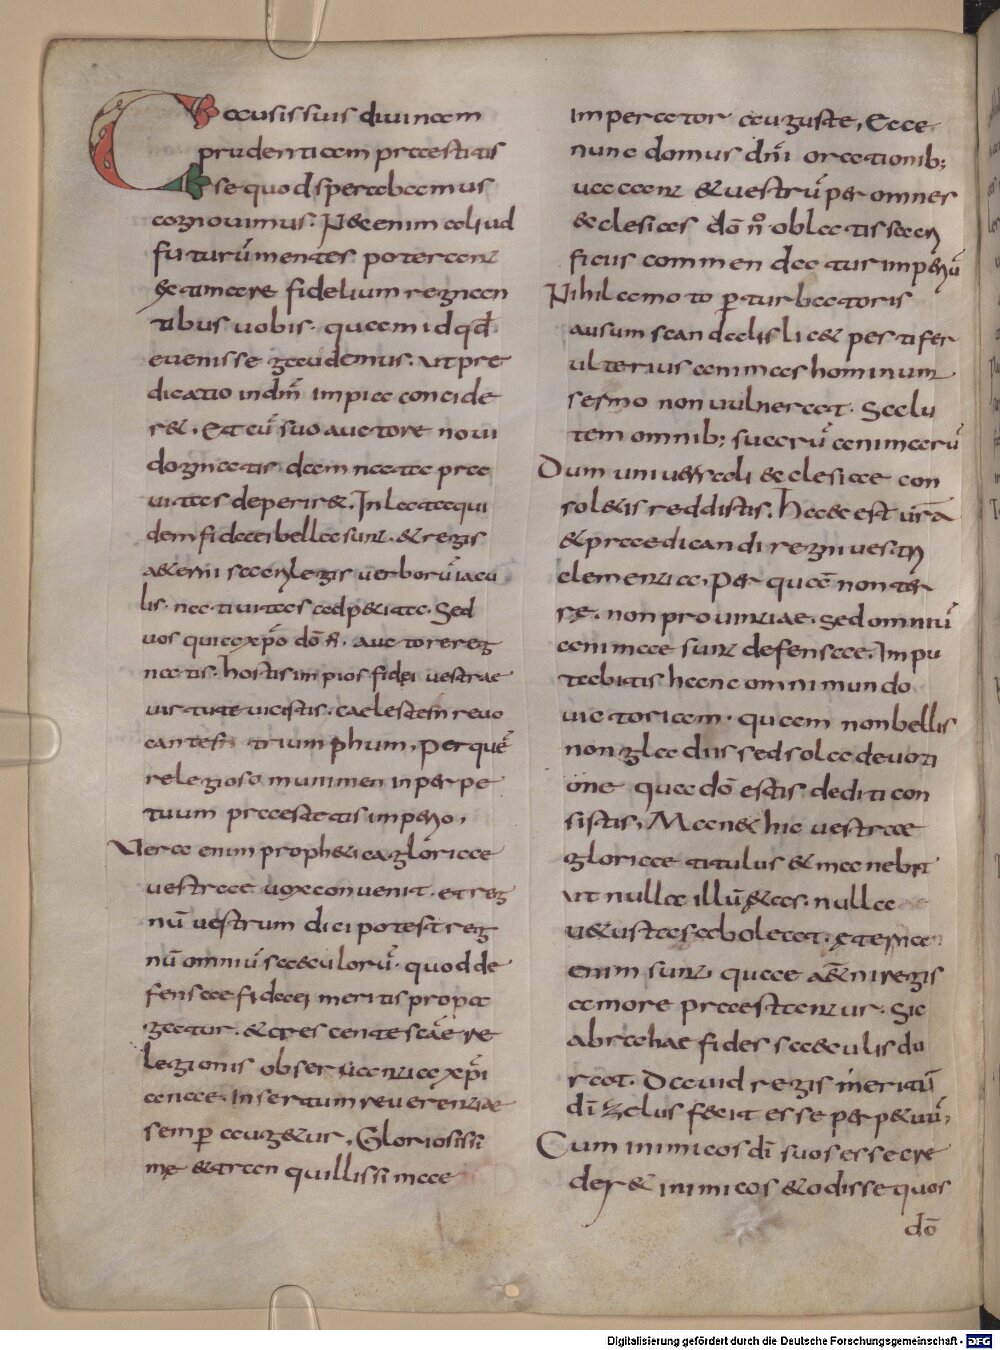 Causis suis diuinam
prudentiam praestitis
se quod sperabamus
cognouimus. N&enim aliud
futurū mentes poteranꞇ
&timere fidelium regnan
tibus uobis. quam id qđ
euenisse gaudemus. ut pre
dicatio in dn̄i impia concide
r&. Et cū suo auctore noui
dogmatis damnata pra
uitas deperir&. In lata equi
dem fidei bella sunt. & regis
aeterni sacri legis uerborū iacu
lis. nec ciuitas ad p&ita. Sed
uos quia xp̄o dō n̄. auctore reg
natis. hostis impios fidei uestrae
uirtute uicistis. caelestem reuo
cantem triumphum. Per quē
relegioso munimen in perpe
tuum praestatis imperio.
Vera enim proph&ica gloriae
uestrae uox conuenit. et reg
nū uestrum dici potest reg
nū omniū saeculorū. quod de
fensae fidei meritis propa
gatur. & crescente scāe re
legionis obseruantia xp̄i
anae. In sertum reuerentiae
semp̄ aug&ur. Gloriosissi
me &tranquillissimae
Imperator auguste, Ecce
nunc domus dn̄i orationib;
uacanꞇ &uestrū per omnes
&clesias dō nō oblatis sacri
ficiis commendatur imperiū
Nihil amoto p̄turbatoris
ausum scandalis lic& pestifer
ulterius animas hominum
sermo non uulnerat. Salu
tem omnib; suarū animarū
Dum uniuersali &clesiae con
sol&is reddistis. Haec est urā
&praedicandi regni uestri
clementia. Per quā non ter
re. non prouinciae. sed omniū
animae sunꞇ defensae. Impu
tabitis hanc omni mundo
uictoriam. quam non bellis
non gladiis sed sola deuoti
one qua dō estis dediti con
sistis. Man& hic uestrae
gloriae titulus & manebit
ut nulla illū &as. nulla
u&ustas aboleat. &terna
enim sunꞇ. quae aeterni regis
amore praestanꞇur. Sic
abrahae fides saeculis du
rat. Dauid regis meritū
dī zelus fecit esse perp&uū.
Cum inimicos dī suos esse cre
der& inimicos &odisse quos
dō
Digitalisierung gefördert durch die Deutsche Forschungsgemeinschaft - DFG